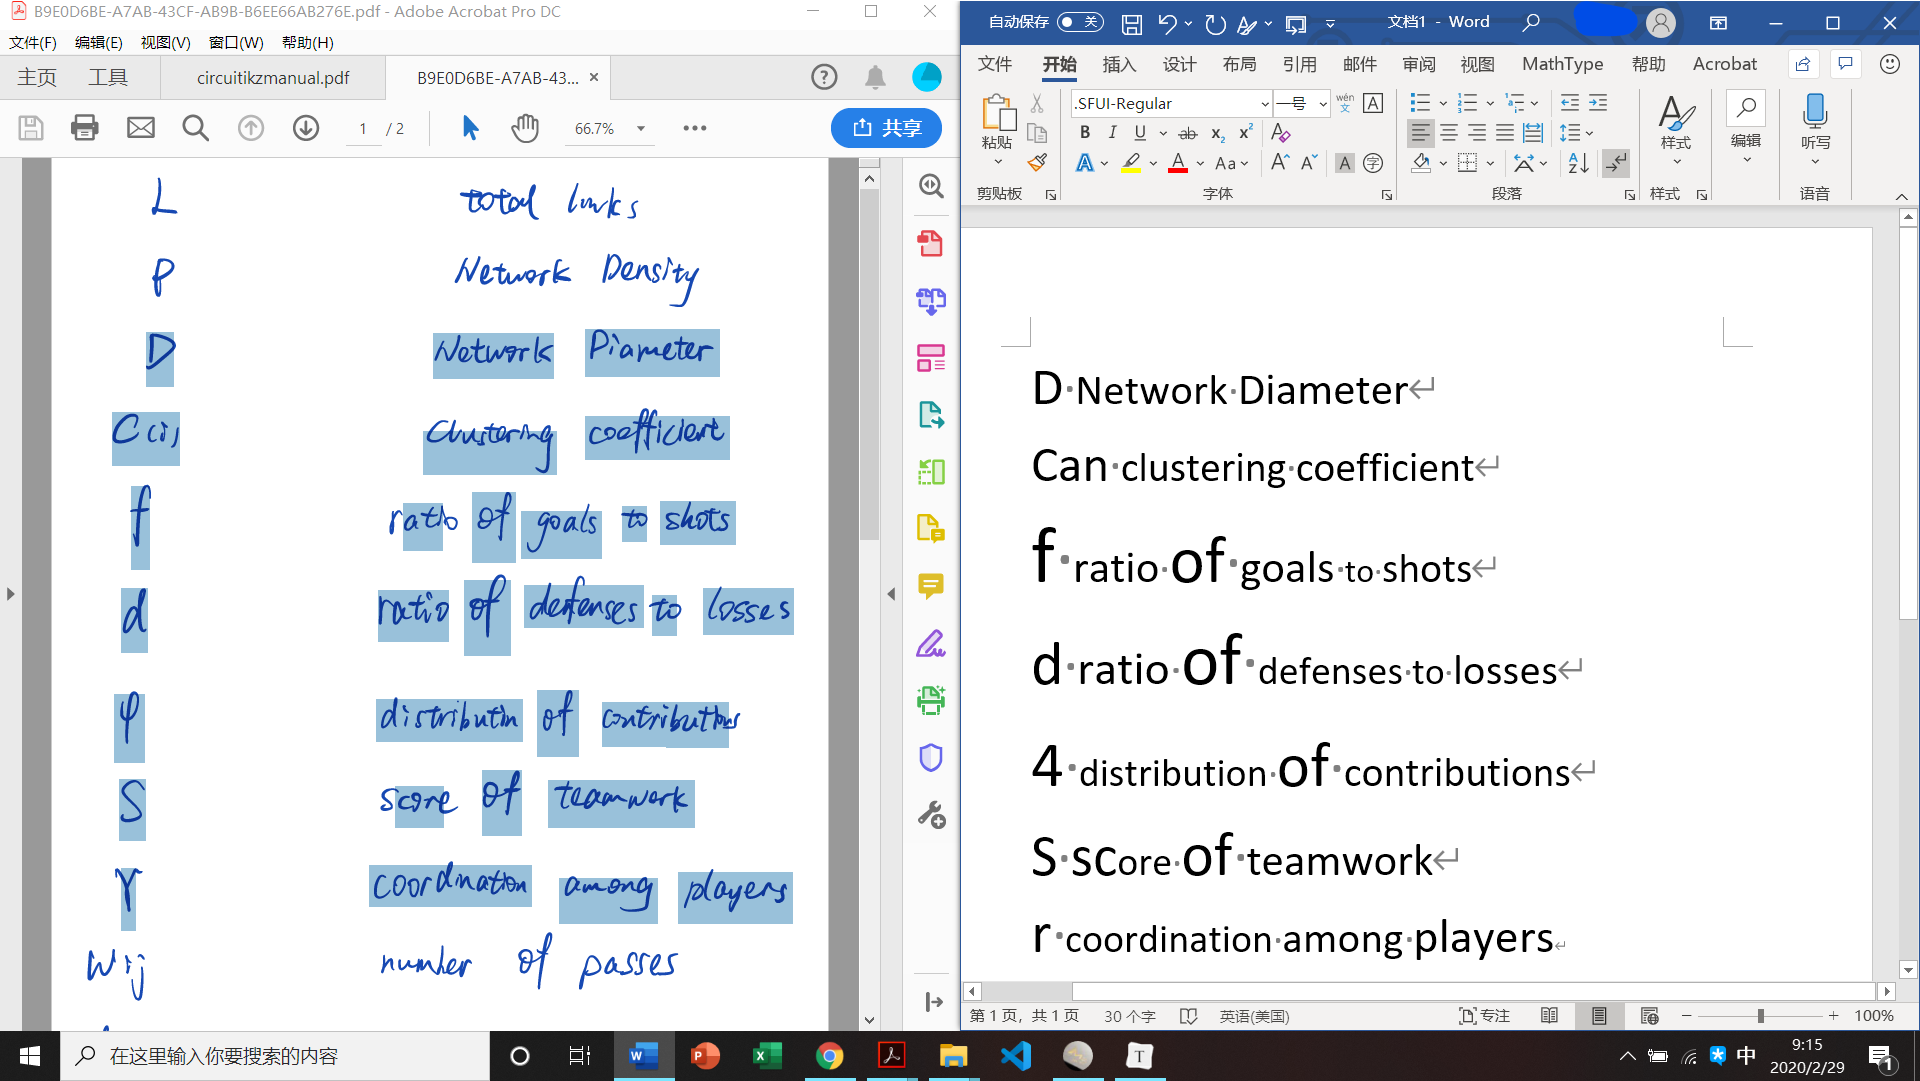 B9E0D6BE-A7AB-43CF-AB9B-B6EE66AB276E.pdf - Adobe Acrobat Pro DC
文件(F) 编辑(E) 视图(V) 窗口(W) 帮助(H)
主页 工具 circuitikzmanual.pdf B9E0D6BE-A7AB-43... ×
1 / 2 66.7% 共享
L total links
ρ Network Density
D Network Diameter
C(i) Clustering coefficient
f ratio of goals to shots
d ratio of defenses to losses
φ distributin of contributions
S score of teamwork
γ coordination among players
Wij number of passes
自动保存 关 文档1 - Word
文件 开始 插入 设计 布局 引用 邮件 审阅 视图 MathType 帮助 Acrobat
.SFUI-Regular 一号 wén 文 A
B I U ab x₂ x² A
A A Aa A A A 字
粘贴 样式 编辑 听写
剪贴板 字体 段落 样式 语音
D Network Diameter
Can clustering coefficient
f ratio of goals to shots
d ratio of defenses to losses
4 distribution of contributions
S score of teamwork
r coordination among players
第1页，共1页 30个字 英语(美国) 专注 100%
在这里输入你要搜索的内容
中 9:15
2020/2/29
1